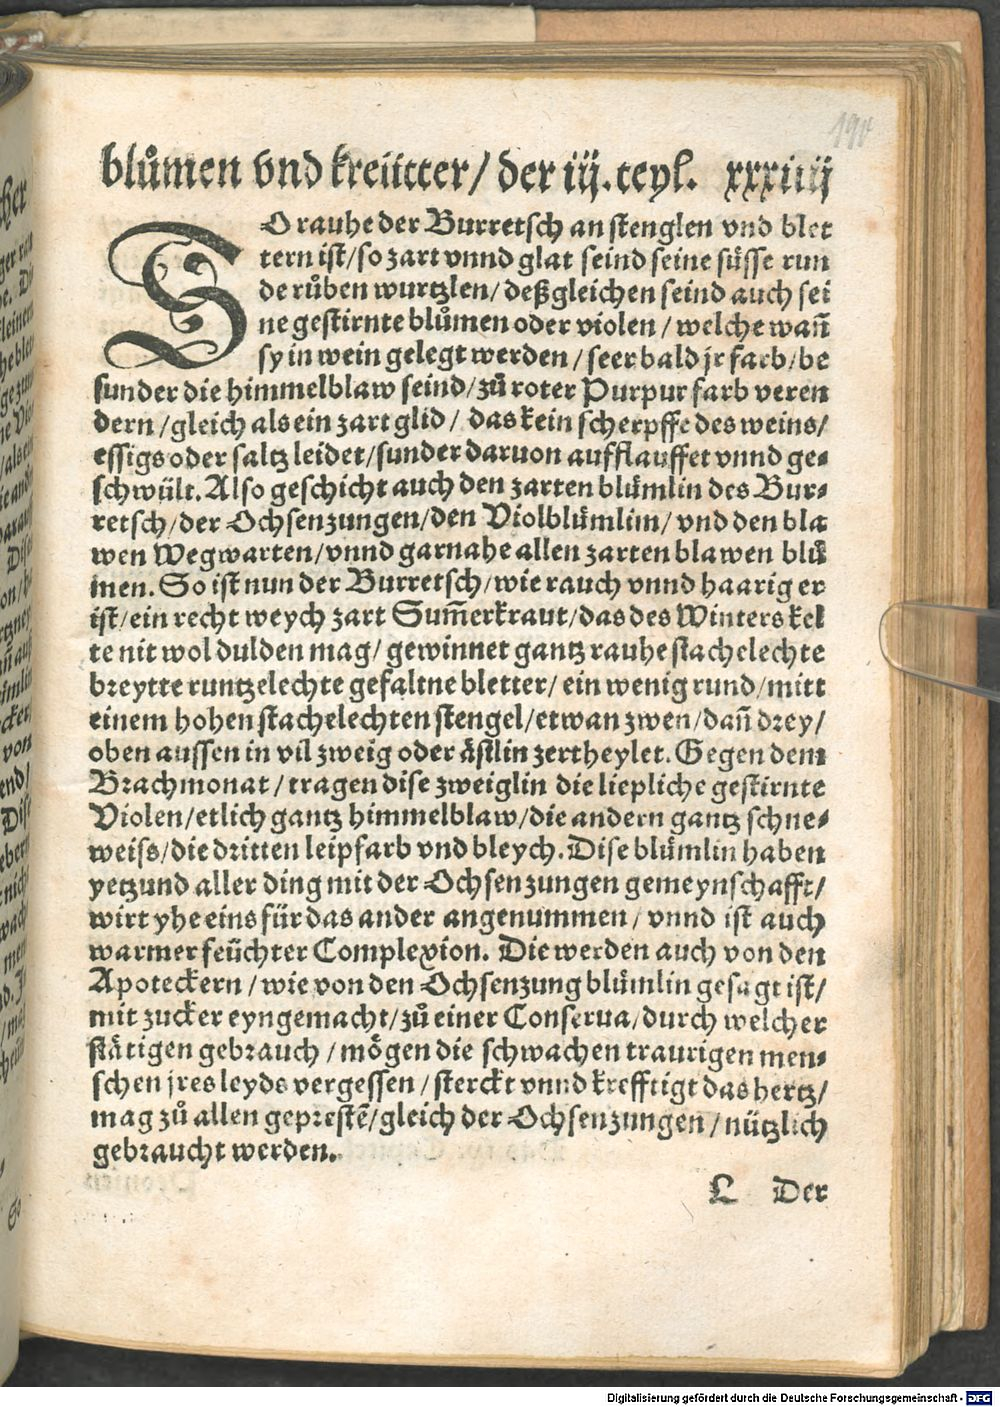 blůmen vnd kreütter/ der iij. teyl. xxxiiij
SO rauhe der Burretsch an stenglen vnd blet
tern ist/so zart vnnd glat seind seine süsse run
de růben wurtzlen/ deßgleichen seind auch sei
ne gestirnte blůmen oder violen / welche wañ
sy in wein gelegt werden / seer bald jr farb/be
sunder die himmelblaw seind/zů roter Purpur farb veren
dern /gleich als ein zart glid / das kein scherpffe des weins/
essigs oder saltz leidet/sunder daruon aufflauffet vnnd ge⸗
schwült. Also geschicht auch den zarten blümlin des Bur⸗
retsch/der Ochsenzungen/den Violblümlim/ vnd den bla
wen Wegwarten/vnnd garnahe allen zarten blawen blů
men. So ist nun der Burretsch/wie rauch vnnd haarig er
ist/ein recht weych zart Sum̃erkraut/das des Winters kel
te nit wol dulden mag/ gewinnet gantz rauhe stachelechte
breytte runtzelechte gefaltne bletter/ ein wenig rund/mitt
einem hohen stachelechten stengel/etwan zwen/dañ drey/
oben aussen in vil zweig oder ästlin zertheylet. Gegen dem
Brachmonat / tragen dise zweiglin die liepliche gestirnte
Violen/etlich gantz himmelblaw/die andern gantz schne⸗
weiss/die dritten leipfarb vnd bleych. Dise blümlin haben
yetzund aller ding mit der Ochsenzungen gemeynschafft/
wirt yhe eins für das ander angenummen / vnnd ist auch
warmer feüchter Complexion. Die werden auch von den
Apoteckern /wie von den Ochsenzung blümlin gesagt ist/
mit zucker eyngemacht/zů einer Conserua/durch welcher
stätigen gebrauch /mögen die schwachen traurigen men⸗
schen jres leyds vergessen /sterckt vnnd krefftigt das hertz/
mag zů allen geprestẽ/gleich der Ochsenzungen /nützlich
gebraucht werden.
L Der
Digitalisierung gefördert durch die Deutsche Forschungsgemeinschaft - DFG